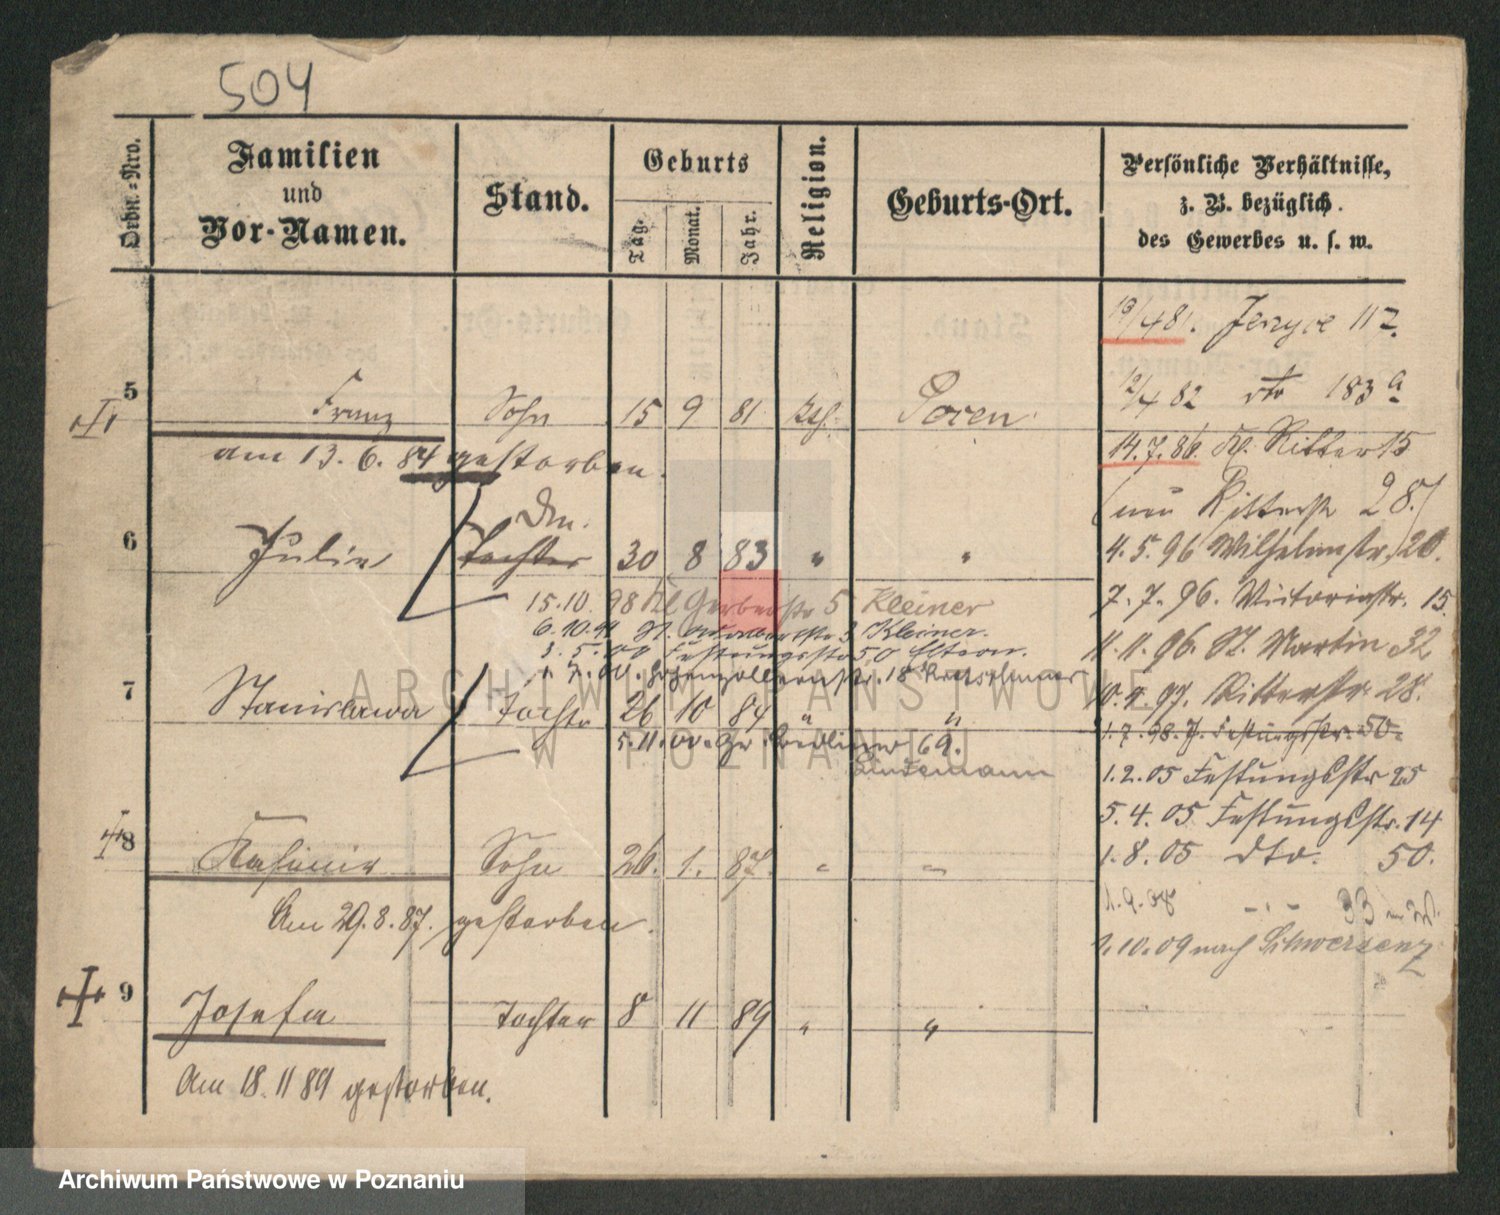 504
Ordn.-Nro.
Familien und Vor-Namen.
Stand.
Geburts
Tag.
Monat.
Jahr.
Religion.
Geburts-Ort.
Persönliche Verhältnisse, z. B. bezüglich des Gewerbes u. s. w.
19/4 81. Jerzyce 117.
12/4 82 dto 183 a
5 Franz Sohn 15 9 81 kth. Posen
14.7.86. Ritter 15
am 13. 6. 84 gestorben.
(nun Ritterstr 28.)
Dm.
6 Julie Tochter 30 8 83 " "
4. 5. 96 Wilhelmstr. 20.
15.10. 98 Kl Gerberstr 5 Kleiner
7. 7. 96. Victoriastr. 15
6.10.99 3 Kleiner.
3. 5. 00 Festungsstr 50 Eltern.
11.11.96. St. Martin 32
1. 7. 00. Hohenzollernstr. 18 Kretschmer
7 Stanislawa Tochter 26 10 84 " "
10.4.97. Ritterstr. 28.
5.11.00. Gr. Berliner 69.
Lindemann
1.7.98. Festungsstr. 50
1.2.05 Festungsstr 25
5.4.05 Festungsstr. 14
8 Kasimir Sohn 26. 1. 87. " "
1.8.05 dto. 50.
Am 29.8.87. gestorben.
1.9.08 -"- 33
1.10.09 nach Schwersenz
9 Josefa Tochter 8 11 89 " "
Am 18. 11 89 gestorben.
ARCHIWUM PAŃSTWOWE
W POZNANIU
Archiwum Państwowe w Poznaniu